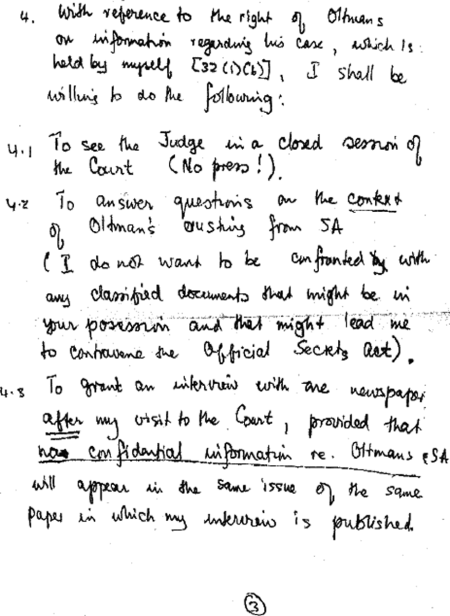 4. With reference to the right of Oltmans
on information regarding his case, which is
held by myself [32(1)(b)], I shall be
willing to do the following:
4.1 To see the Judge in a closed session of
the Court (No press!).
4.2 To answer questions on the context
of Oltman's ousting from SA
(I do not want to be confronted by with
any classified documents that might be in
your posession and that might lead me
to contravene the Official Secrets Act).
4.3 To grant an interview with one newspaper
after my visit to the Court, provided that
no confidential information re. Oltmans & SA
will appear in the same issue of the same
paper in which my interview is published.
3